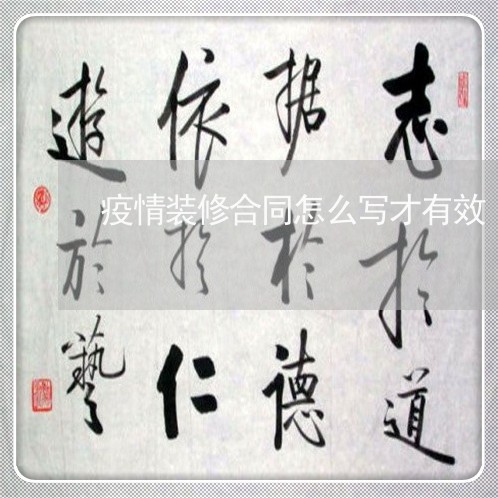 志扵道
据於德
依扵仁
遊於藝
疫情装修合同怎么写才有效